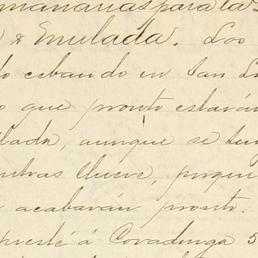 manarias para las
& Emulada. Los
lo cebando en San Lu
o que pronto estarán
lada, aunque se tu
utras llueve, porque
acabarán pronto.
presté á Covadonga 5